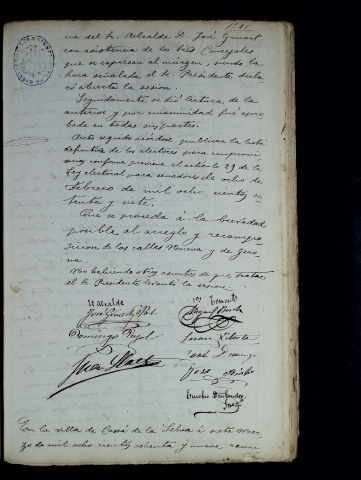 cia del Sr. Alcalde D. José
con asistencia de los Sres Concejales
que se expresan al márgen, siendo la
hora señalada el Sr. Presidente decla
ró abierta la sesion.
Seguidamente se dió lectura de la
anterior y por unanimidad fué apro
bada en todas sus partes.
Acto seguido acordóse publicar la lista
definitiva de los electores para compromi
sarios conforme previene el artículo 29 de la
Ley electoral para senadores de ocho de
Febrero de mil ocho cientos se
tenta y siete.
Que se proceda á la brevedad
posible al arreglo y recompo
sicion de las calles Nueva y de Gero
na.
No habiendo otros asuntos de que tratar
el Sr. Presidente levantó la sesion.
El Alcalde
Domingo
José
En la villa de Cassá de la Selva á siete Mar
zo de mil ocho cientos ochenta y nueve reuni